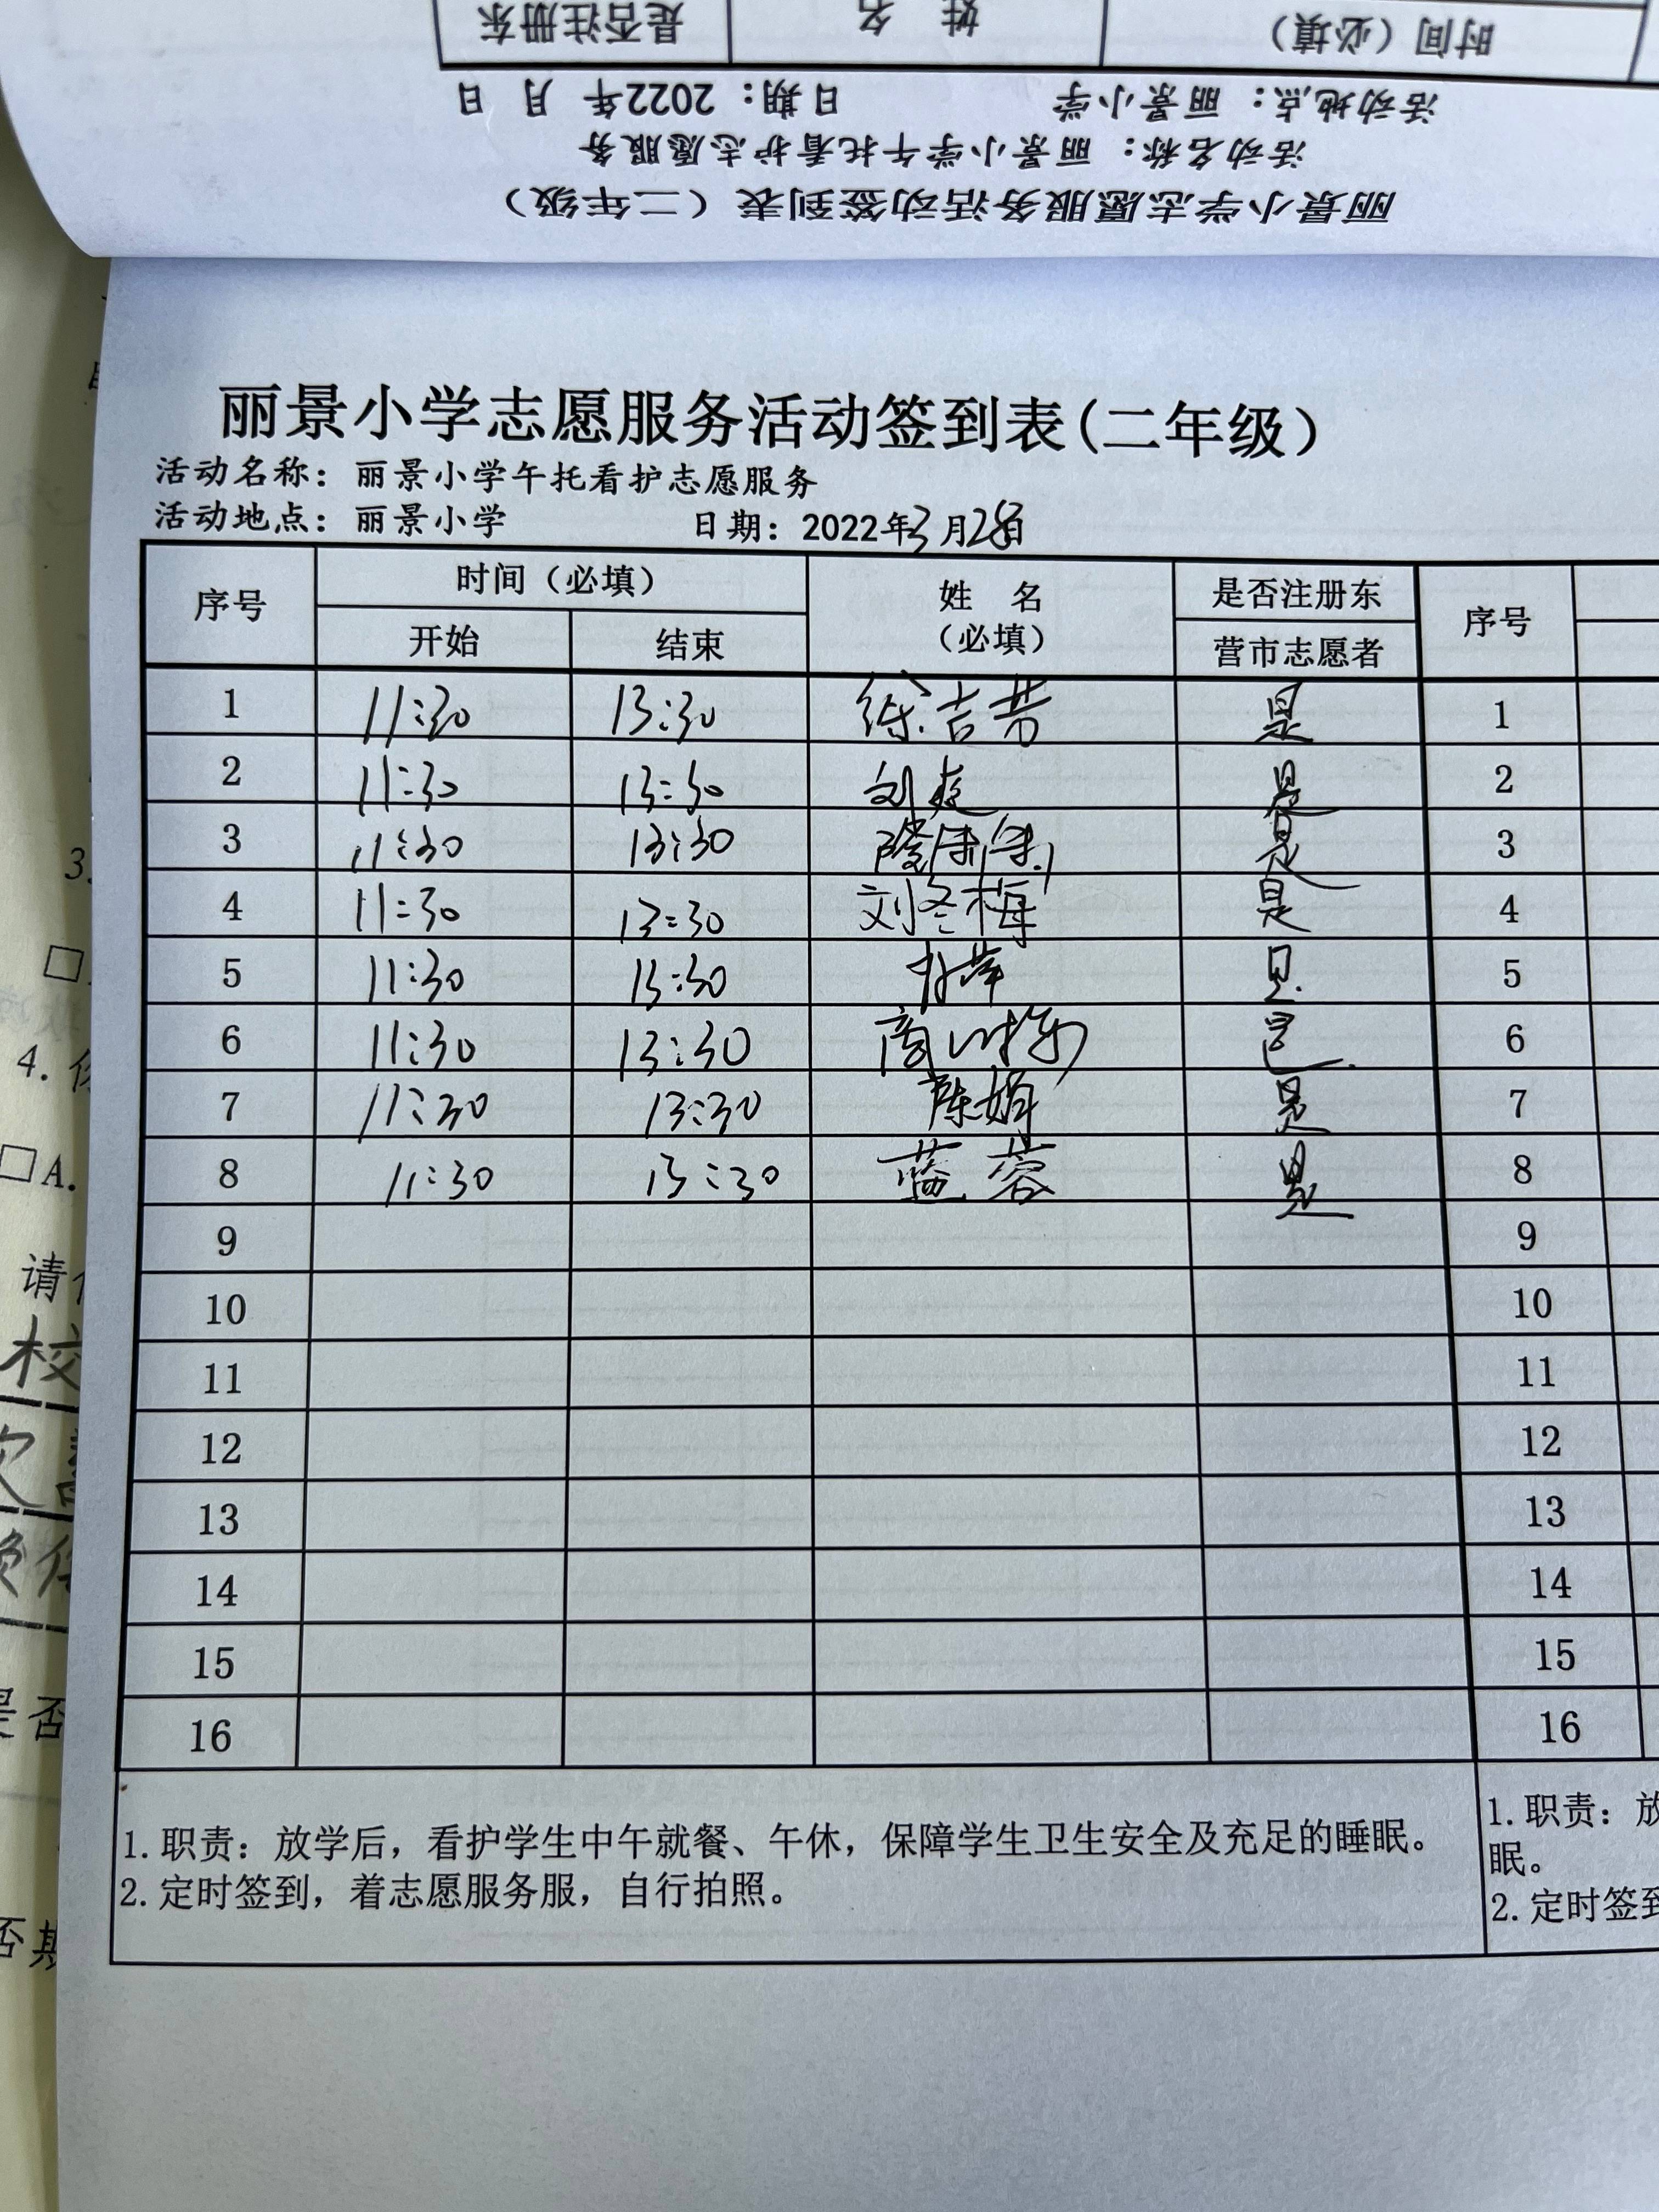 是否注册东 姓 名 时间（必填）
活动地点：丽景小学 日期：2022年 月 日
活动名称：丽景小学午托看护志愿服务
丽景小学志愿服务活动签到表（二年级）
丽景小学志愿服务活动签到表(二年级）
活动名称：丽景小学午托看护志愿服务
活动地点：丽景小学 日期：2022年3月28日
序号 时间（必填） 姓 名 是否注册东 序号
开始 结束 （必填） 营市志愿者
1 11:30 13:30 是 1
2 11:30 13:30 刘 是 2
3 11:30 13:30 是 3
4 11:30 13:30 刘冬梅 是 4
5 11:30 13:30 5
6 11:30 13:30 6
7 11:30 13:30 陈娟 是 7
8 11:30 13:30 蓝蓉 是 8
9 9
10 10
11 11
12 12
13 13
14 14
15 15
16 16
1.职责：放学后，看护学生中午就餐、午休，保障学生卫生安全及充足的睡眠。
2.定时签到，着志愿服务服，自行拍照。
1.职责：放
眠。
2.定时签到
3.
4.
□A.
请
校
次
是否
否期